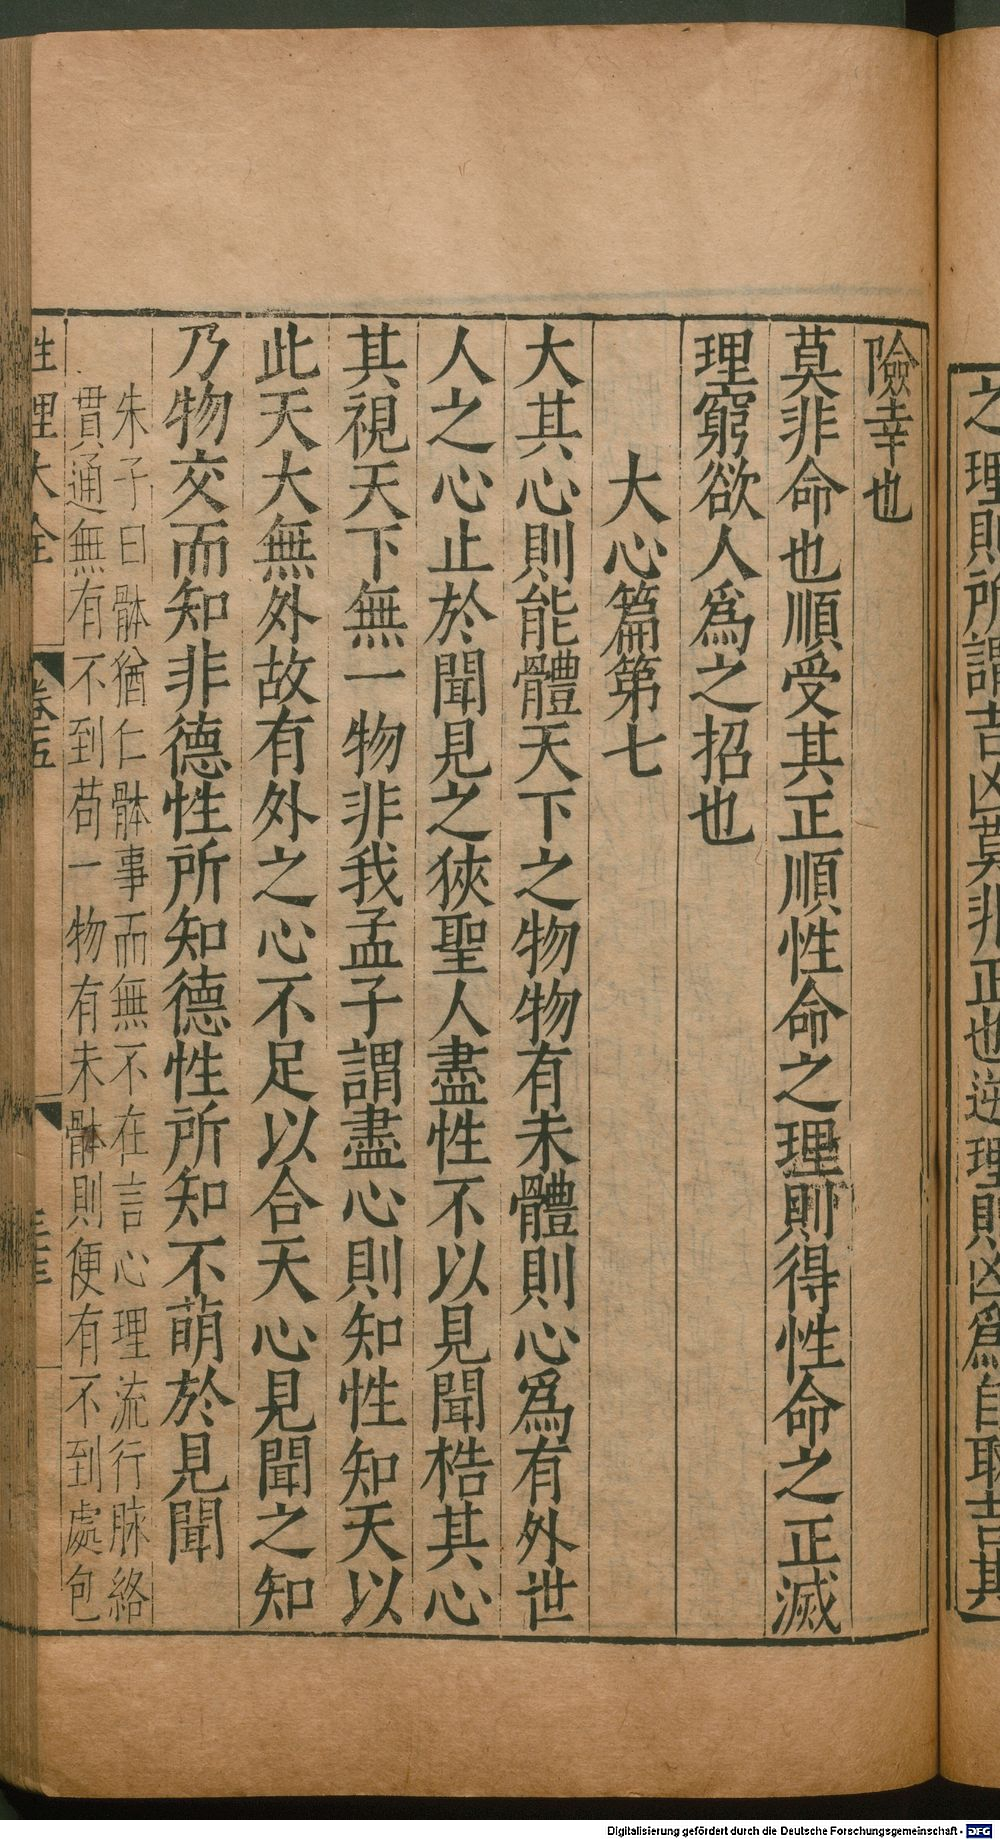 之理則所謂吉凶莫非正也逆理則凶爲自取吉其
險幸也
莫非命也順受其正順性命之理則得性命之正滅
理窮欲人爲之招也
大心篇第七
大其心則能體天下之物物有未體則心爲有外世
人之心止於聞見之狹聖人盡性不以見聞梏其心
其視天下無一物非我孟子謂盡心則知性知天以
此天大無外故有外之心不足以合天心見聞之知
乃物交而知非德性所知德性所知不萌於見聞
朱子曰骵猶仁骵事而無不在言心理流行脉絡
貫通無有不到苟一物有未骵則便有不到處包
性理大全 卷五
Digitalisierung gefördert durch die Deutsche Forschungsgemeinschaft - DFG